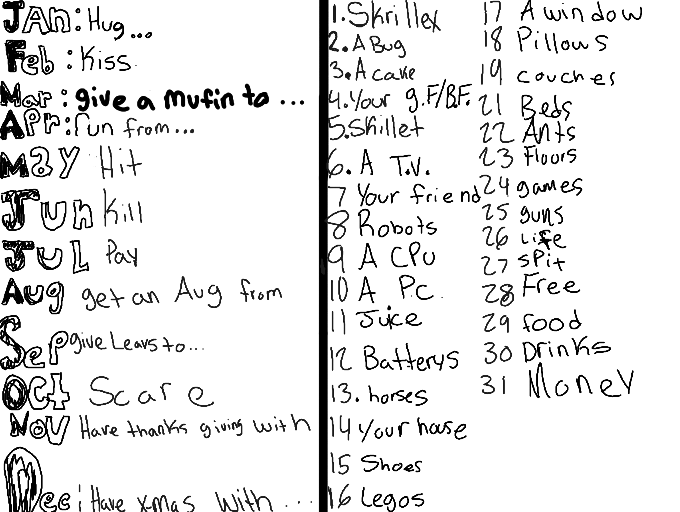 JAN: Hug...
Feb: Kiss
Mar: give a mufin to ...
APr: run from...
May Hit
Jun Kill
JUL Pay
Aug get an Aug from
Sep give Leavs to...
OCt Scare
NOV Have thanks giving with
Dec: Have x-mas with ...
1. Skrillex
2. A Bug
3. A cake
4. Your g.F/B.F.
5. Skillet
6. A T.V.
7 Your friend
8 Robots
9 A CPU
10 A Pc
11 Juice
12 Batterys
13. horses
14 your house
15 Shoes
16 Legos
17 A window
18 Pillows
19 couches
21 Beds
22 Ants
23 Floors
24 games
25 guns
26 Life
27 sPit
28 Free
29 food
30 Drinks
31 Money